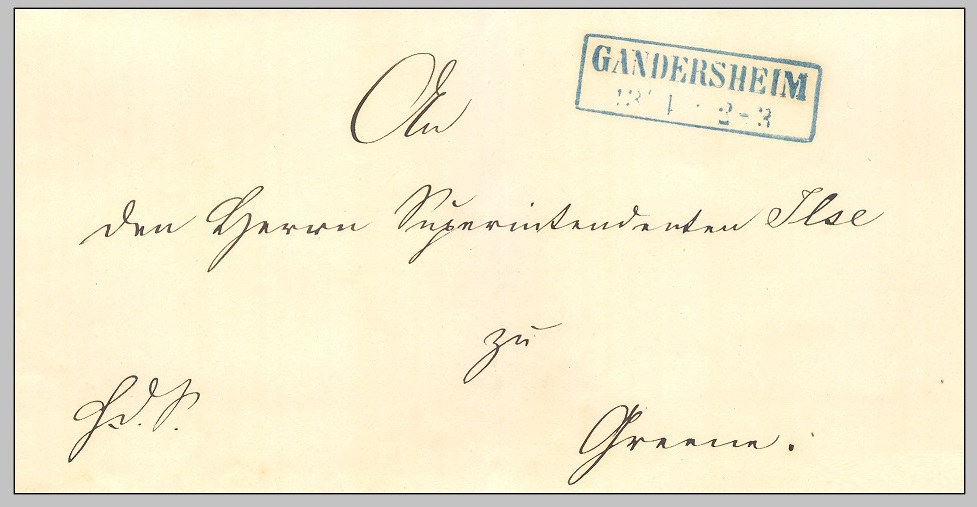 An
GANDERSHEIM
2-3
den Herrn Superintendenten Ilse
zu
H.d.S.
Greene.